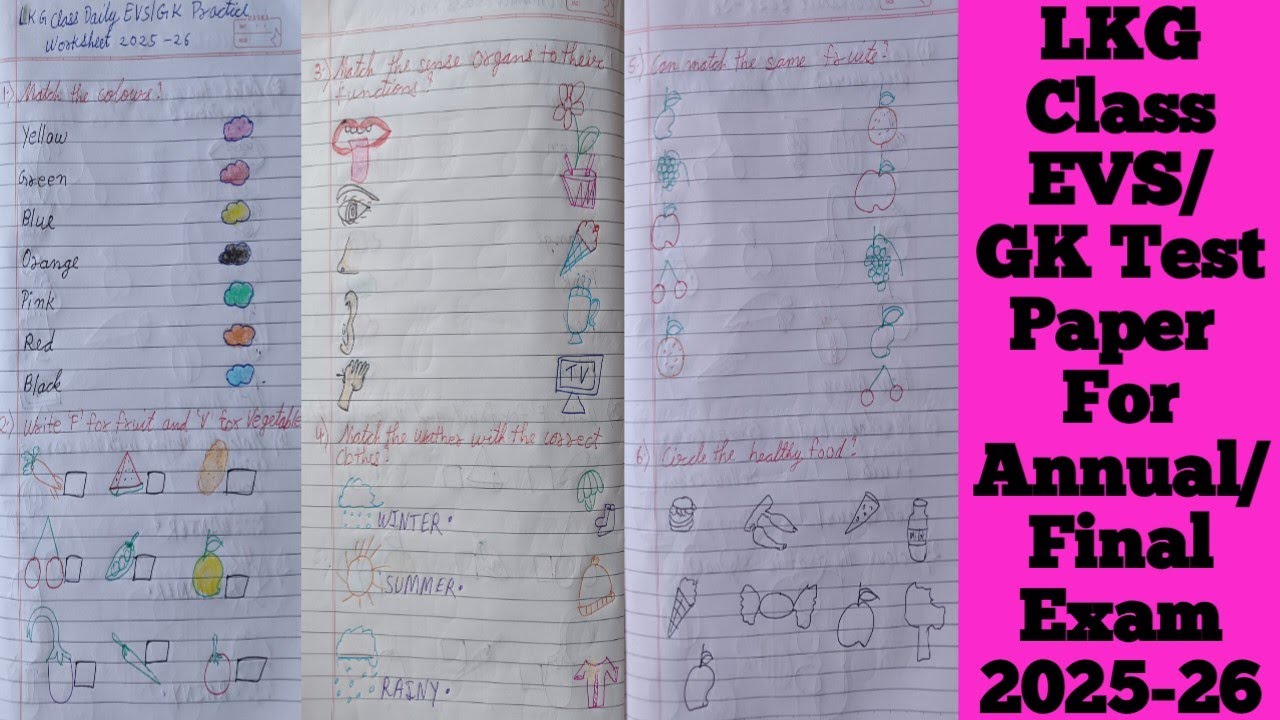 LKG Class Daily EVS/GK Practice
Worksheet 2025-26
1) Match the colours?
Yellow
Green
Blue
Orange
Pink
Red
Black
2) Write 'F' for fruit and 'V' for vegetable
3) Match the sense organs to their
functions?
TV
4) Match the weather with the correct
clothes?
WINTER.
SUMMER.
RAINY.
5) Can match the same fruits?
6) Circle the healthy food?
MILK
LKG
Class
EVS/
GK Test
Paper
For
Annual/
Final
Exam
2025-26